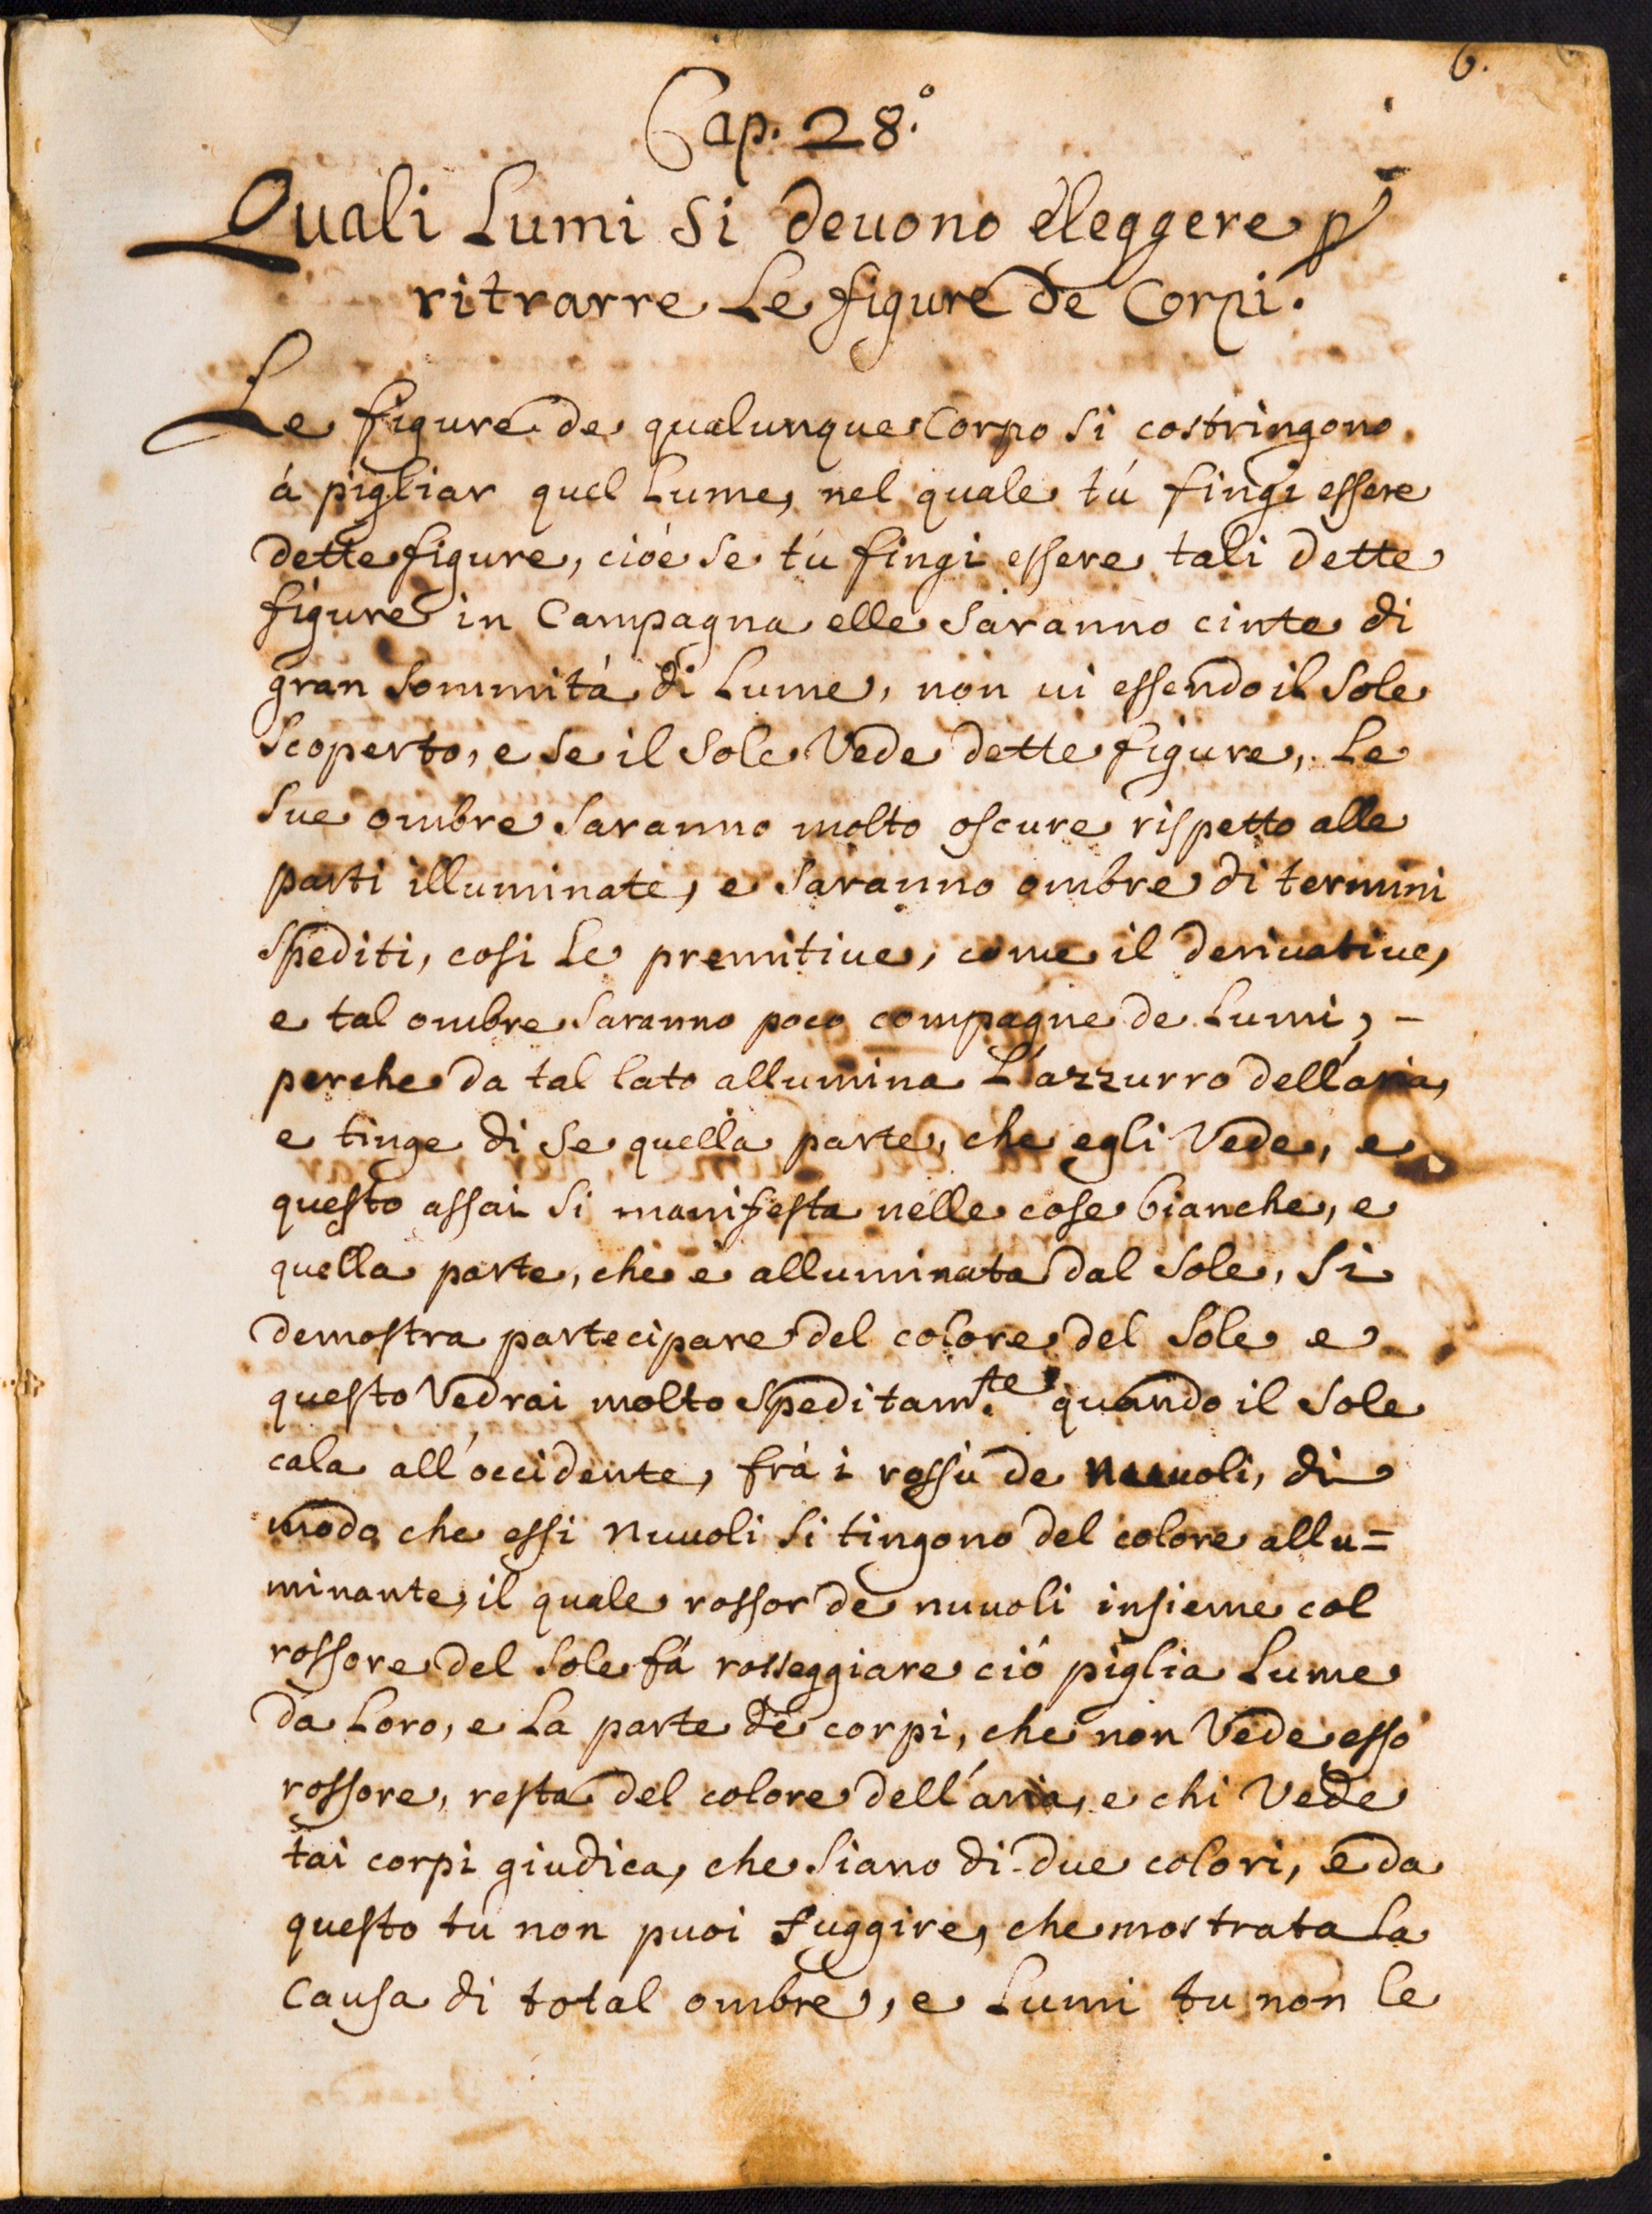 6.
Cap. 28.º
Quali Lumi si deuono éleggere p
ritrarre Le figure de Corpi.
Le figure de qualunque Corpo si costringono
á pigliar quel Lume, nel quale tú fingi essere
dette figure, cioé se tú fingi essere tali dette
figure in Campagna elle saranno cinte di
gran sommitá di Lume, non ui essendo il Sole
scoperto, e se il Sole Vede dette figure, Le
sue ombre saranno molto oscure rispetto alle
parti illuminate, e saranno ombre di termini
spediti, cosi Le premitiue, come il deriuatiue,
e tal ombre saranno poco compagne de Lumi, -
perche da tal lato allumina L'azzurro dell'aria,
e tinge di se quella parte, che egli Vede, e
questo assai si manifesta nelle cose bianche, e
quella parte, che é alluminata dal Sole, si
demostra partecipare del colore del Sole e
questo Vedrai molto speditam.te quando il Sole
cala all'occidente, frá i rossi de nuuoli, di
modo che essi nuuoli si tingono del colore allu=
minante, il quale rossor de nuuoli insieme col
rossore del Sole fá rosseggiare ció piglia Lume
da Loro, e La parte de corpi, che non Vede esso
rossore, resta del colore dell'aria, e chi Vede
tai corpi giudica, che siano di due colori, e da
questo tú non puoi fuggire, che mostrata La
Causa di total ombre, e Lumi tu non le